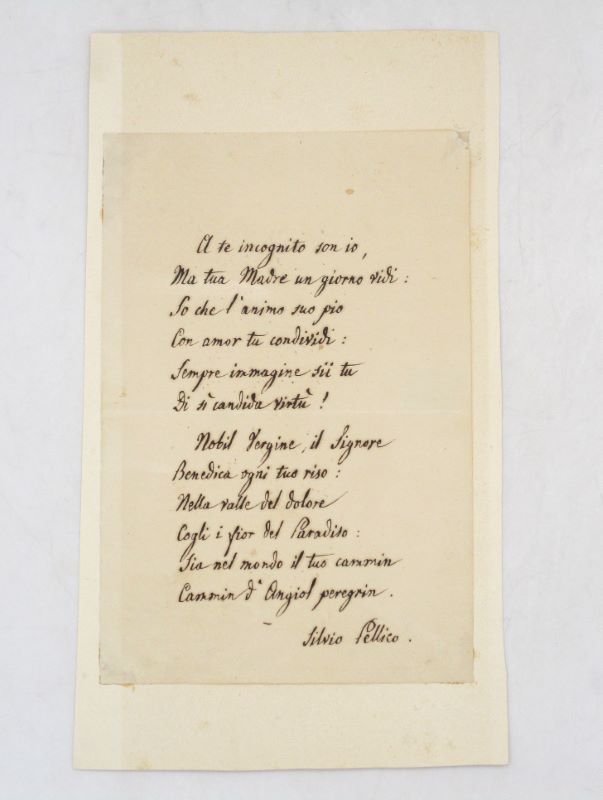 A te incognito son io,
Ma tua Madre un giorno vidi:
So che l'animo suo pio
Con amor tu condividi:
Sempre immagine sii tu
Di sì candida virtù!
Nobil Vergine, il Signore
Benedica ogni tuo riso:
Nella valle del dolore
Cogli i fior del Paradiso:
Sia nel mondo il tuo cammin
Cammin d'Angiol peregrin.
Silvio Pellico.